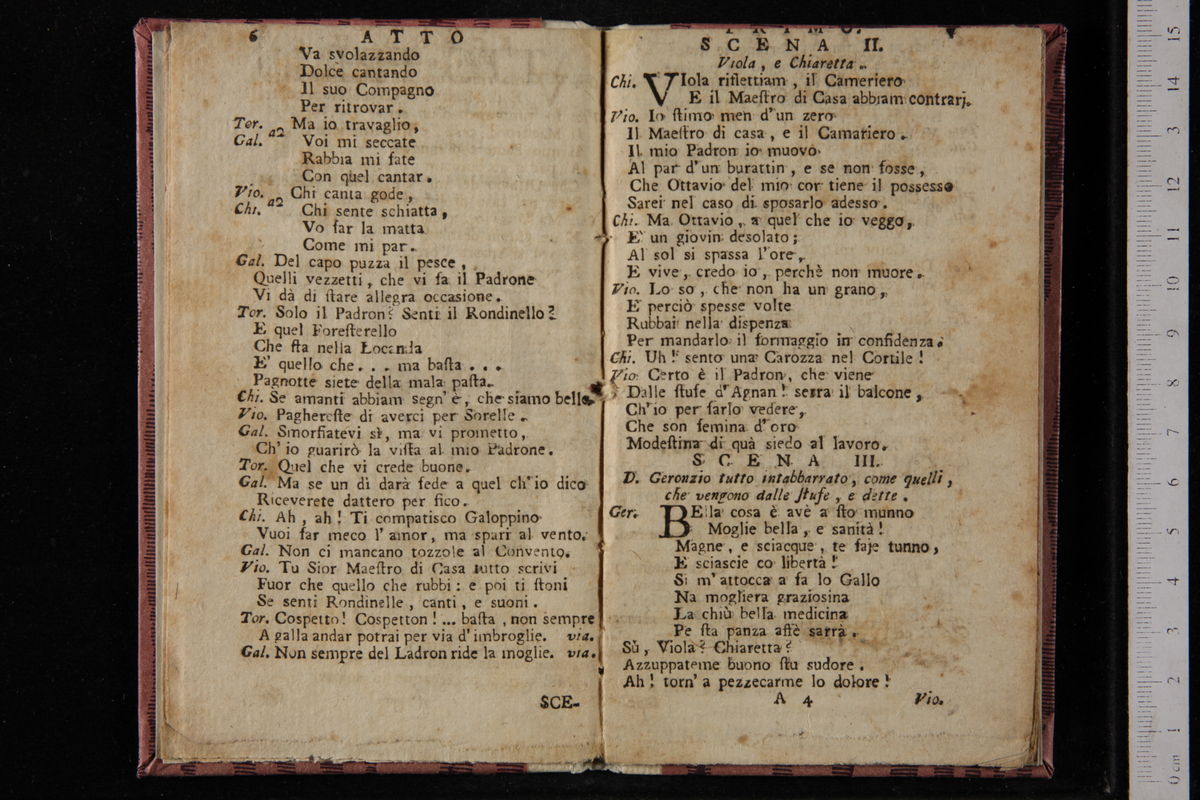 6 ATTO
Va svolazzando
Dolce cantando
Il suo Compagno
Per ritrovar.
Tor. a2 Ma io travaglio,
Gal. Voi mi seccate
Rabbia mi fate
Con quel cantar.
Vio. a2 Chi canta gode,
Chi. Chi sente schiatta,
Vo far la matta
Come mi par.
Gal. Del capo puzza il pesce,
Quelli vezzetti, che vi fa il Padrone
Vi dà di ſtare allegra occasione.
Tor. Solo il Padron? Senti il Rondinello?
E quel Foreſterello
Che ſta nella Locanda
E' quello che... ma baſta...
Pagnotte siete della mala paſta.
Chi. Se amanti abbiam segn' è, che siamo belle.
Vio. Paghereſte di averci per Sorelle.
Gal. Smorfiatevi sì, ma vi prometto,
Ch' io guarirò la viſta al mio Padrone.
Tor. Quel che vi crede buone.
Gal. Ma se un dì darà fede a quel ch'io dico
Riceverete dattero per fico.
Chi. Ah, ah! Ti compatisco Galoppino
Vuoi far meco l'amor, ma spari al vento.
Gal. Non ci mancano tozzole al Convento.
Vio. Tu Sior Maeſtro di Casa tutto scrivi
Fuor che quello che rubbi: e poi ti ſtoni
Se senti Rondinelle, canti, e suoni.
Tor. Cospetto! Cospetton!... baſta, non sempre
A galla andar potrai per via d'imbroglie. via.
Gal. Non sempre del Ladron ride la moglie. via.
SCE-
PRIMO.
SCENA II.
Viola, e Chiaretta.
Chi. VIola riflettiam, il Cameriero
E il Maeſtro di Casa abbiam contrarj.
Vio. Io ſtimo men d'un zero
Il Maeſtro di casa, e il Camariero.
Il mio Padron io muovo
Al par d'un burattin, e se non fosse,
Che Ottavio del mio cor tiene il possesso
Sarei nel caso di sposarlo adesso.
Chi. Ma Ottavio, a quel che io veggo,
E' un giovin desolato;
Al sol si spassa l'ore,
E vive, credo io, perchè non muore.
Vio. Lo so, che non ha un grano,
E perciò spesse volte
Rubbai nella dispenza
Per mandarlo il formaggio in confidenza.
Chi. Uh! sento una Carozza nel Cortile!
Vio. Certo è il Padron, che viene
Dalle ſtufe d'Agnan! serra il balcone,
Ch'io per farlo vedere,
Che son femina d'oro
Modeſtina di quà siedo al lavoro.
SCENA III.
D. Geronzio tutto intabbarrato, come quelli,
che vengono dalle ſtufe, e dette.
Ger. BElla cosa è avè a ſto munno
Moglie bella, e sanità!
Magne, e sciacque, te faje tunno,
E sciascie co libertà!
Si m'attocca a fa lo Gallo
Na mogliera graziosina
La chiù bella medicina
Pe ſta panza affè sarrà.
Sù, Viola? Chiaretta?
Azzuppateme buono ſtu sudore.
Ah! torn' a pezzecarme lo dolore!
A 4 Vio.